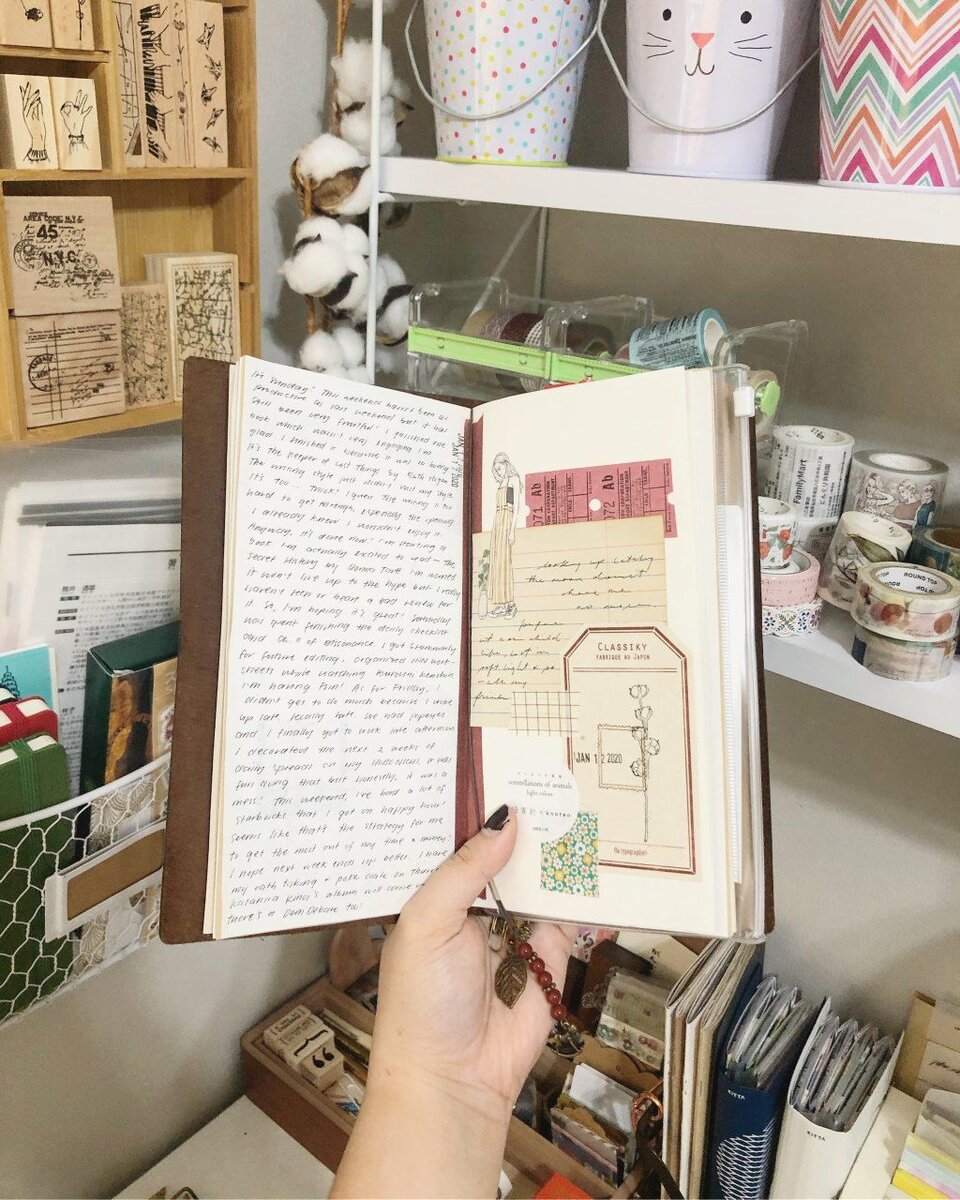 AREA CODE N.Y.C.
45
N.Y.C.
It's Monday! This weekend hasn't been as
productive as last weekend but it has
still been very fruitful! I finished one
book which wasn't very engaging. I'm
glad I finished it because it was so boring.
It's The Keeper of Lost Things by Ruth Hogan.
The writing style just didn't suit my style.
It's too... thick? I guess the writing is too
hard to get through, especially the opening.
I already knew I wouldn't enjoy it.
Anyway, it's done now! I'm starting a
book I'm actually excited to read - The
Secret History by Donna Tartt. I'm worried
it won't live up to the hype but I really
haven't seen or heard a bad review for
it so, I'm hoping it's great! Saturday
was spent finishing the daily checklist
and Ch. 11 of I got Grammarly
for future editing, organized
while watching Rurouni Kenshin
I'm having fun! As for Friday, I
didn't get to do much because I woke
up late, really late. We had Popeyes
and I finally got to work late afternoon
I decorated the next 2 weeks of
daily spread on my Hobonichi. It was
fun doing that but honestly, it was a
mess! This weekend, I've had a lot of
Starbucks that I got on happy hour!
Seems like that's the strategy for me
to get the most out of my time + money!
I hope next week ends up better. I have
my oath taking + poke date on Thurs
Katarina Kinci's album will come
there's a Dom Debate too!
JAN 12 2020
071 Ab
072 Ab
looking up. Letting
the moon
shone me
perfume
soft light &
CLASSIKY
FABRIQUÉ AU JAPON
JAN 12 2020
constellations of animals
light colors
knoten
FamilyMart
ROUND TOP
KITTA
KITTA